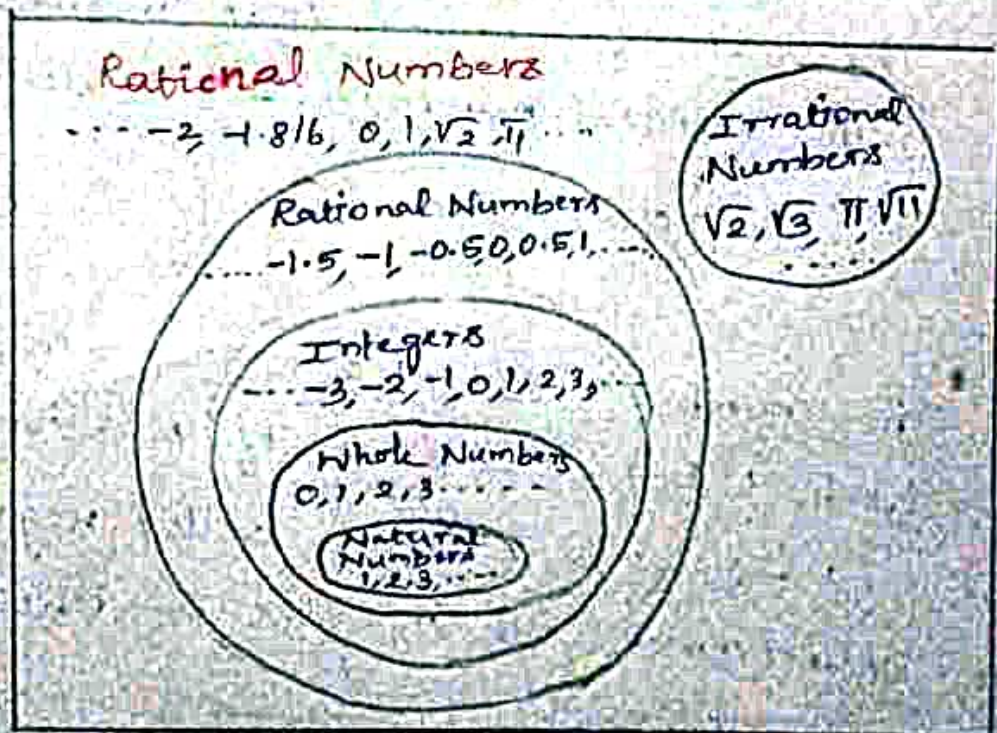 Rational Numbers
.... -2, -1.816, 0, 1, √2, π ....
Irrational
Numbers
√2, √3, π, √11
.....
Rational Numbers
..... -1.5, -1, -0.5, 0, 0.5, 1, .....
Integers
.... -3, -2, -1, 0, 1, 2, 3, ....
Whole Numbers
0, 1, 2, 3 ......
Natural
Numbers
1, 2, 3, ....